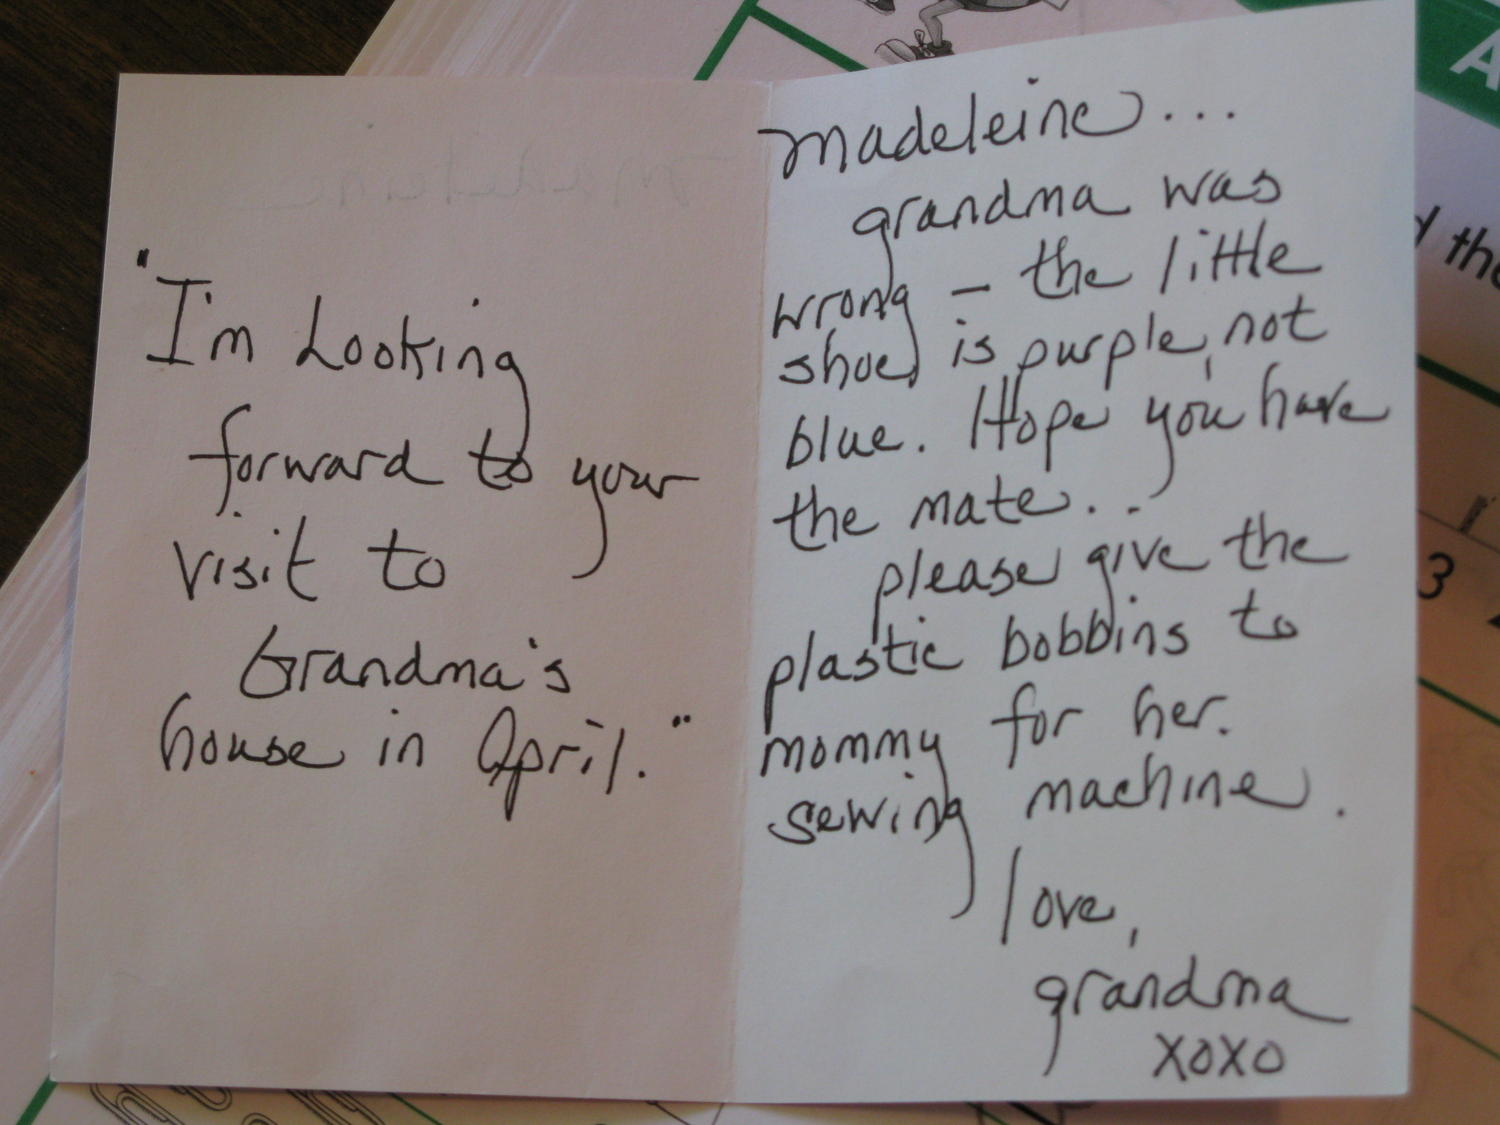 "I'm Looking
forward to your
visit to
Grandma's
house in April."
Madeleine...
grandma was
wrong – the little
shoe is purple, not
blue. Hope you have
the mate...
please give the
plastic bobbins to
mommy for her.
sewing machine.
love,
grandma
xoxo
A
d the
3